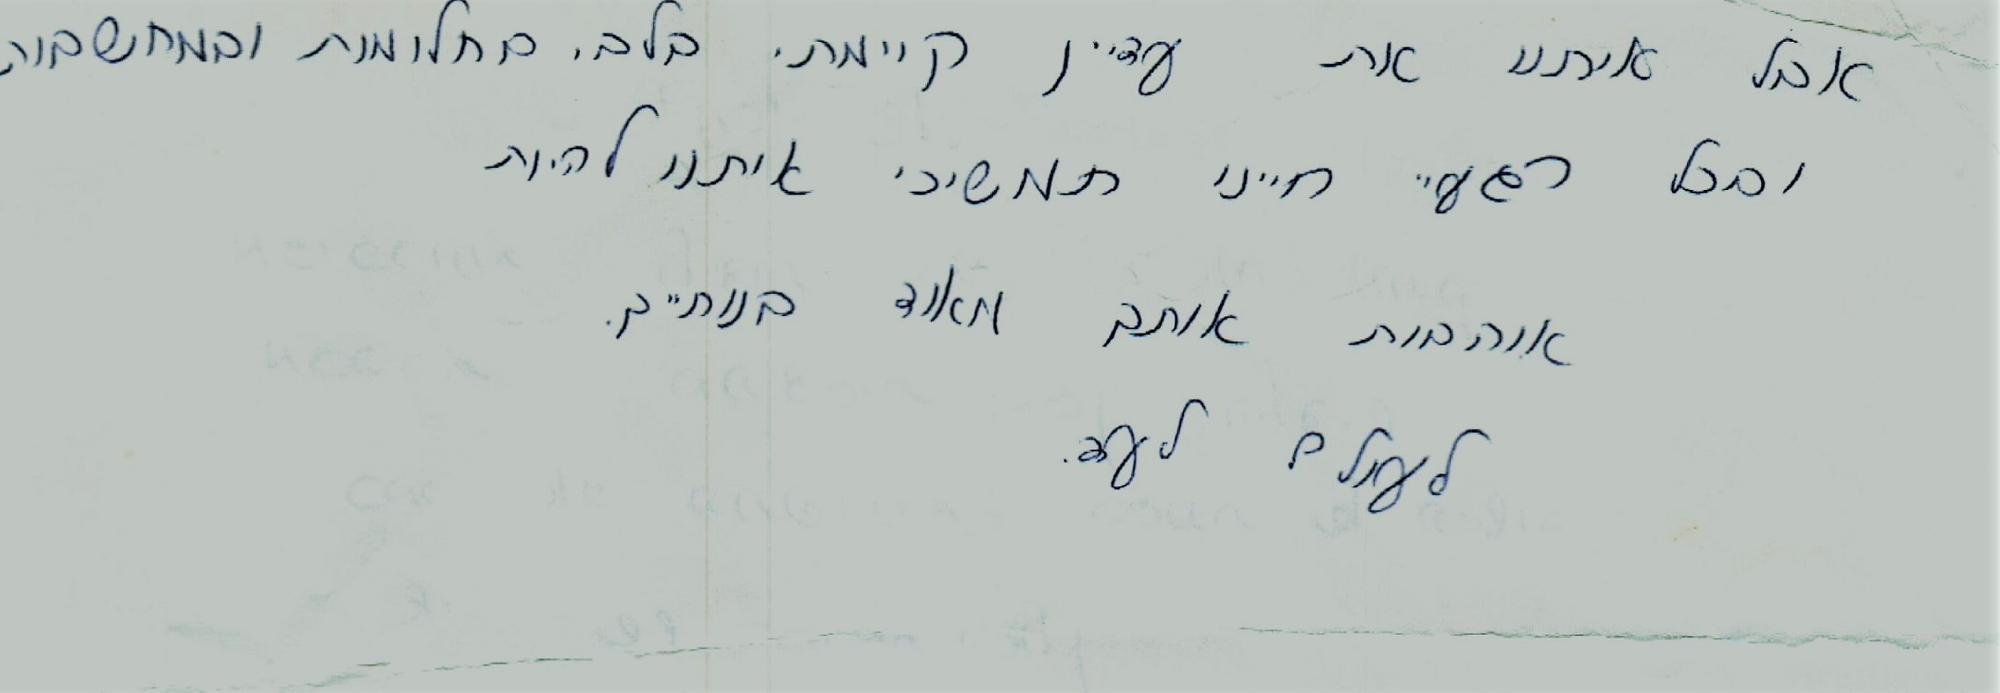 אבל איתנו את עדיין קיימת, בלב, בחלומות ובמחשבות
ובכל רגעיי חיינו תמשיכי איתנו להיות
אוהבות אותך מאוד בנותייך.
לעולם לעד.